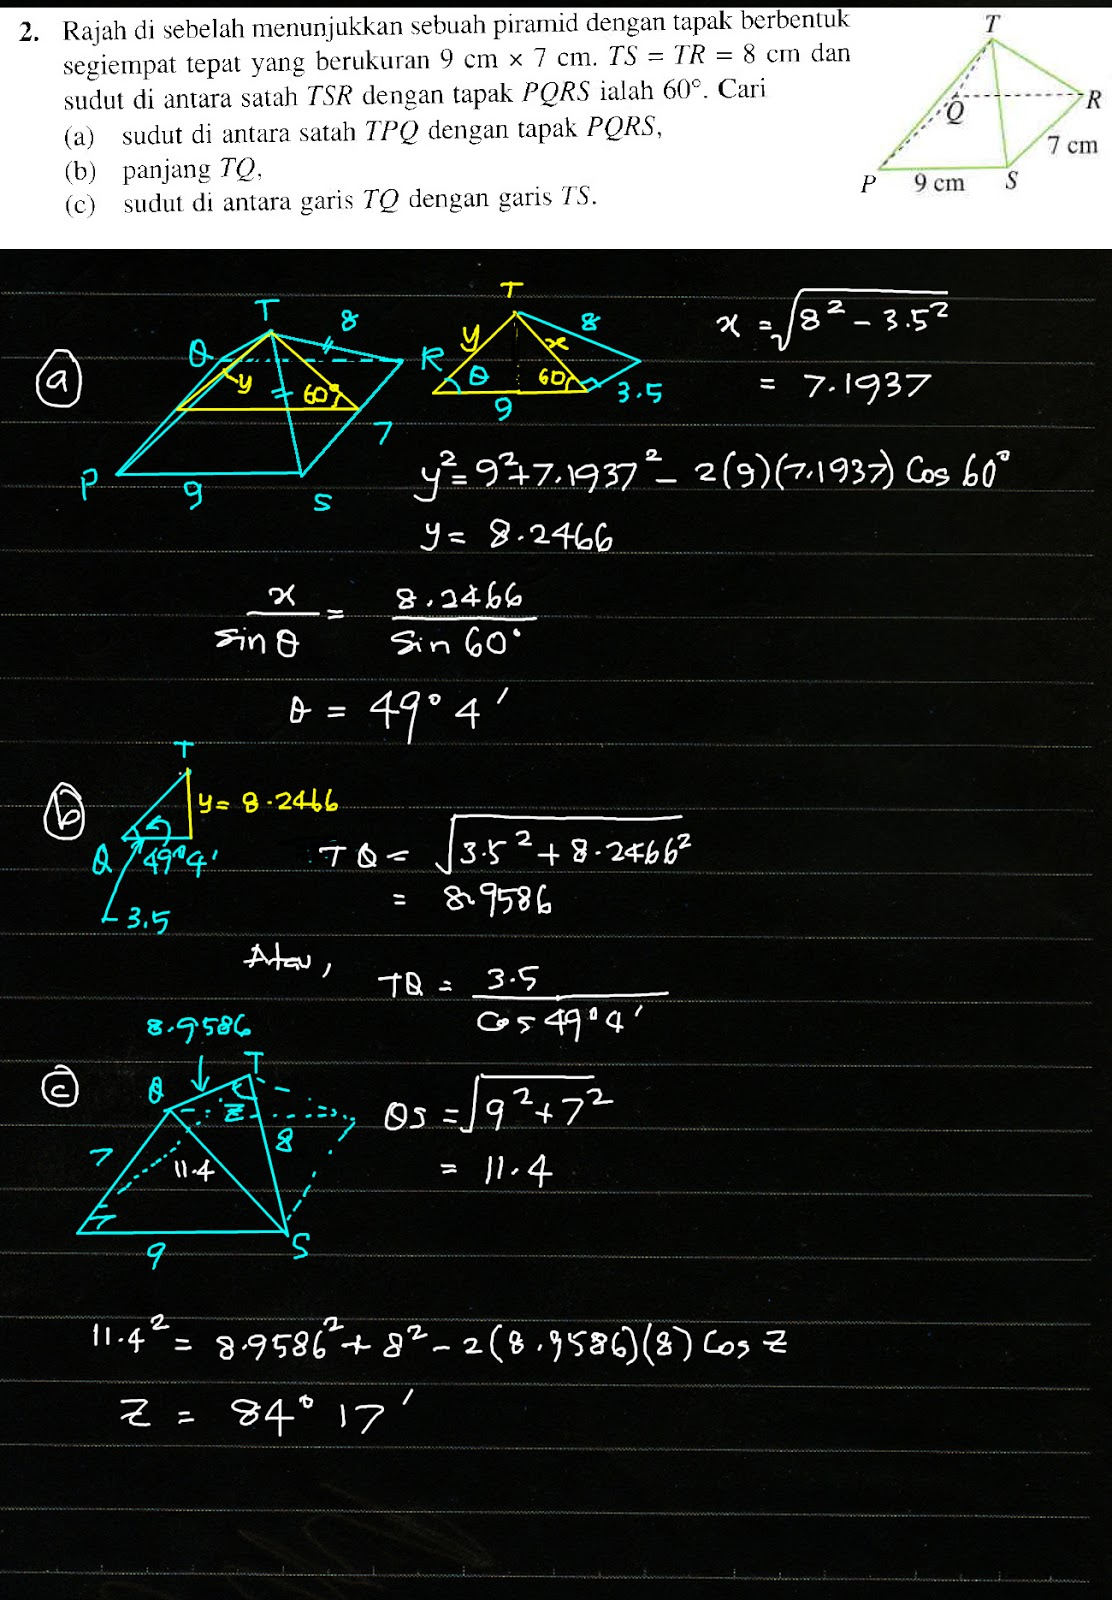 2. Rajah di sebelah menunjukkan sebuah piramid dengan tapak berbentuk
segiempat tepat yang berukuran 9 cm × 7 cm. TS = TR = 8 cm dan
sudut di antara satah TSR dengan tapak PQRS ialah 60°. Cari
(a) sudut di antara satah TPQ dengan tapak PQRS,
(b) panjang TQ,
(c) sudut di antara garis TQ dengan garis TS.
T
Q
R
7 cm
P
9 cm
S
(a)
T
8
Q
y
60°
R
7
P
9
S
T
y
8
x
θ
60°
3.5
9
x = √8² − 3.5²
= 7.1937
y² = 9² + 7.1937² − 2(9)(7.1937) Cos 60°
y = 8.2466
x / sin θ = 8.2466 / Sin 60°
θ = 49° 4′
(b)
T
y = 8.2466
Q
49°4′
3.5
TQ = √3.5² + 8.2466²
= 8.9586
Atau,
TQ = 3.5 / Cos 49°4′
(c)
8.9586
Q
T
z
8
7
11.4
9
S
QS = √9² + 7²
= 11.4
11.4² = 8.9586² + 8² − 2(8.9586)(8) Cos Z
Z = 84° 17′